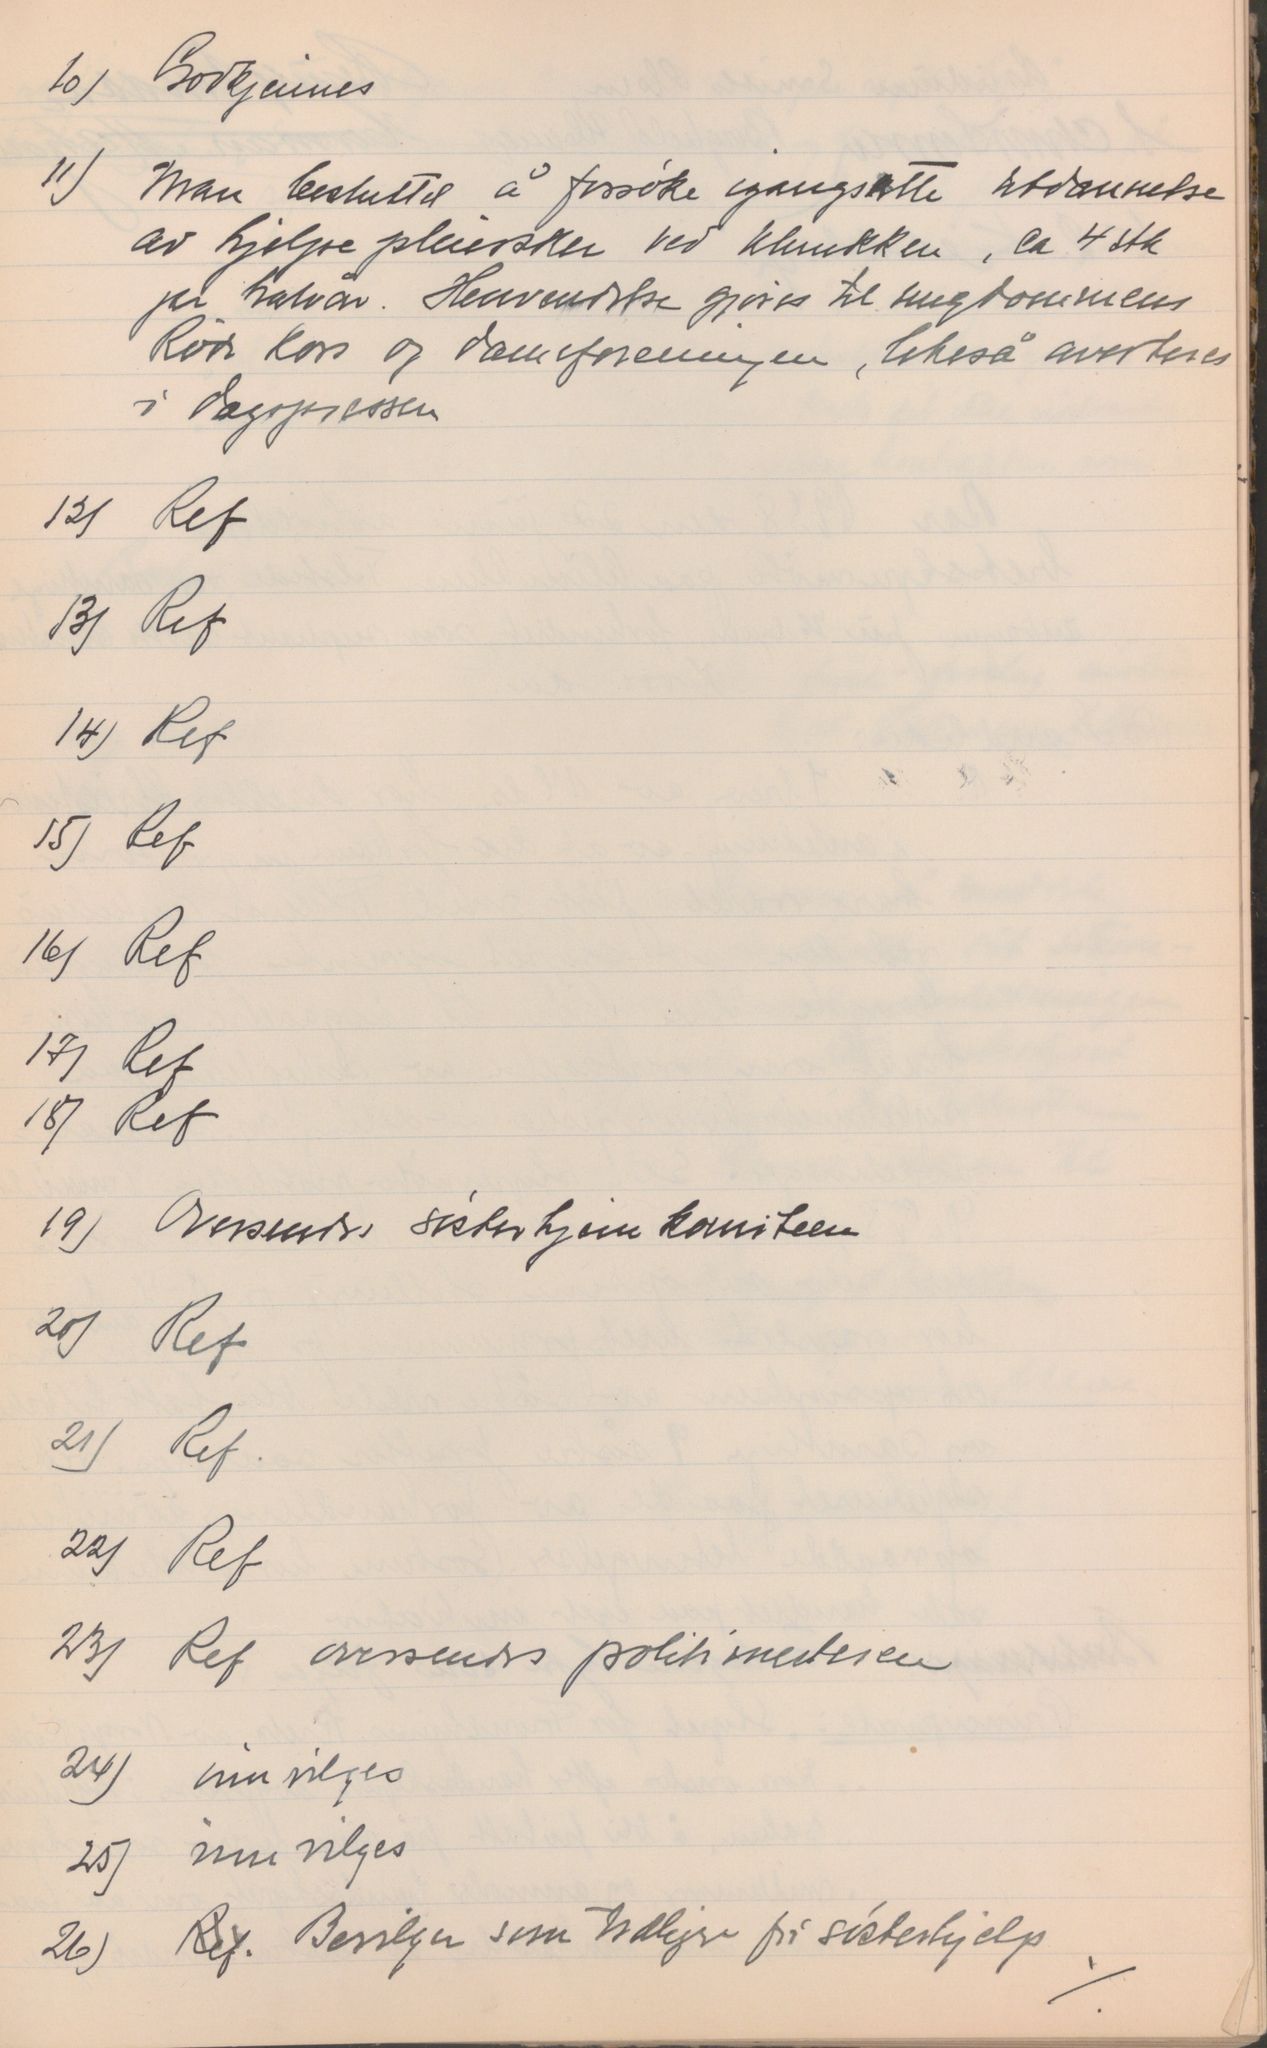 10) Godkjennes
11) Man besluttet å forsöke igangsette utdannelse
av hjelpepleiersker ved klinikken, ca 4 stk
pr halvår. Henvendelse gjöres til ungdommens
Röde Kors og Dameforeningen, likeså averteres
i dagspressen
12) Ref
13) Ref
14) Ref
15) Ref
16) Ref
17) Ref
18) Ref
19) Oversendes sösterhjemkomiteen
20) Ref
21) Ref.
22) Ref
23) Ref oversendes politimesteren
24) innvilges
25) innvilges
26) Ref. Bevilger som tidligere fri sösterhjelp
./.